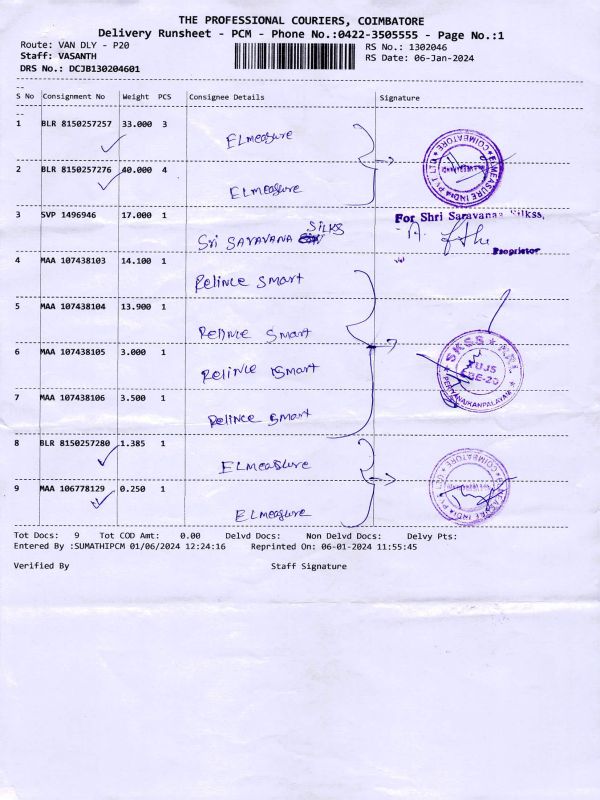 THE PROFESSIONAL COURIERS, COIMBATORE
Delivery Runsheet - PCM - Phone No.:0422-3505555 - Page No.:1
Route: VAN DLY - P20 RS No.: 1302046
Staff: VASANTH RS Date: 06-Jan-2024
DRS No.: DCJB130204601
S No Consignment No Weight PCS Consignee Details Signature
1 BLR 8150257257 33.000 3 ELmeasure
2 BLR 8150257276 40.000 4 ELmeasure
COIMBATORE ELMEASURE INDIA PVT LTD
3 SVP 1496946 17.000 1 Sri SARAVANA SILKS
For Shri Saravanaa Silkss,
Proprietor
4 MAA 107438103 14.100 1 Relince Smart
5 MAA 107438104 13.900 1 Relince Smart
6 MAA 107438105 3.000 1 Relince Smart
7 MAA 107438106 3.500 1 Relince Smart
PERIYANAIKANPALAYAM
8 BLR 8150257280 1.385 1 ELmeasure
9 MAA 106778129 0.250 1 ELmeasure
Tot Docs: 9 Tot COD Amt: 0.00 Delvd Docs: Non Delvd Docs: Delvy Pts:
Entered By :SUMATHIPCM 01/06/2024 12:24:16 Reprinted On: 06-01-2024 11:55:45
Verified By Staff Signature